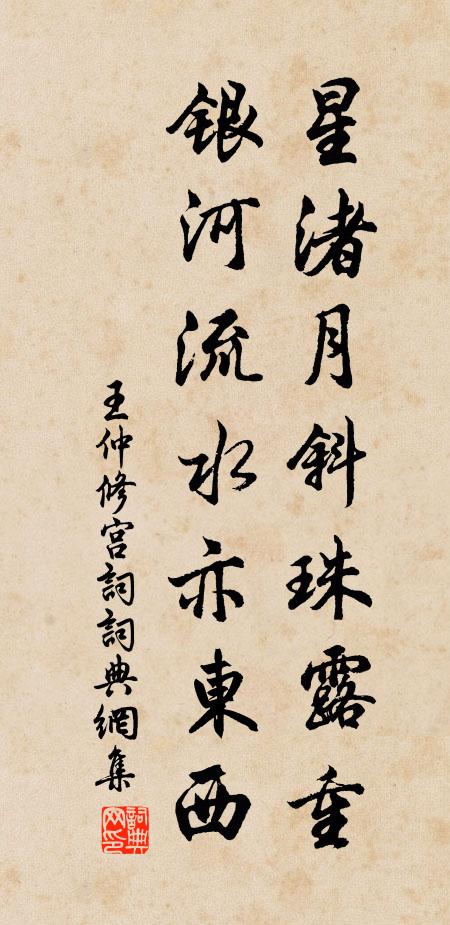 星渚月斜珠露重
銀河流水亦東西
王仲修宫詞詞典網集
詞典
网印